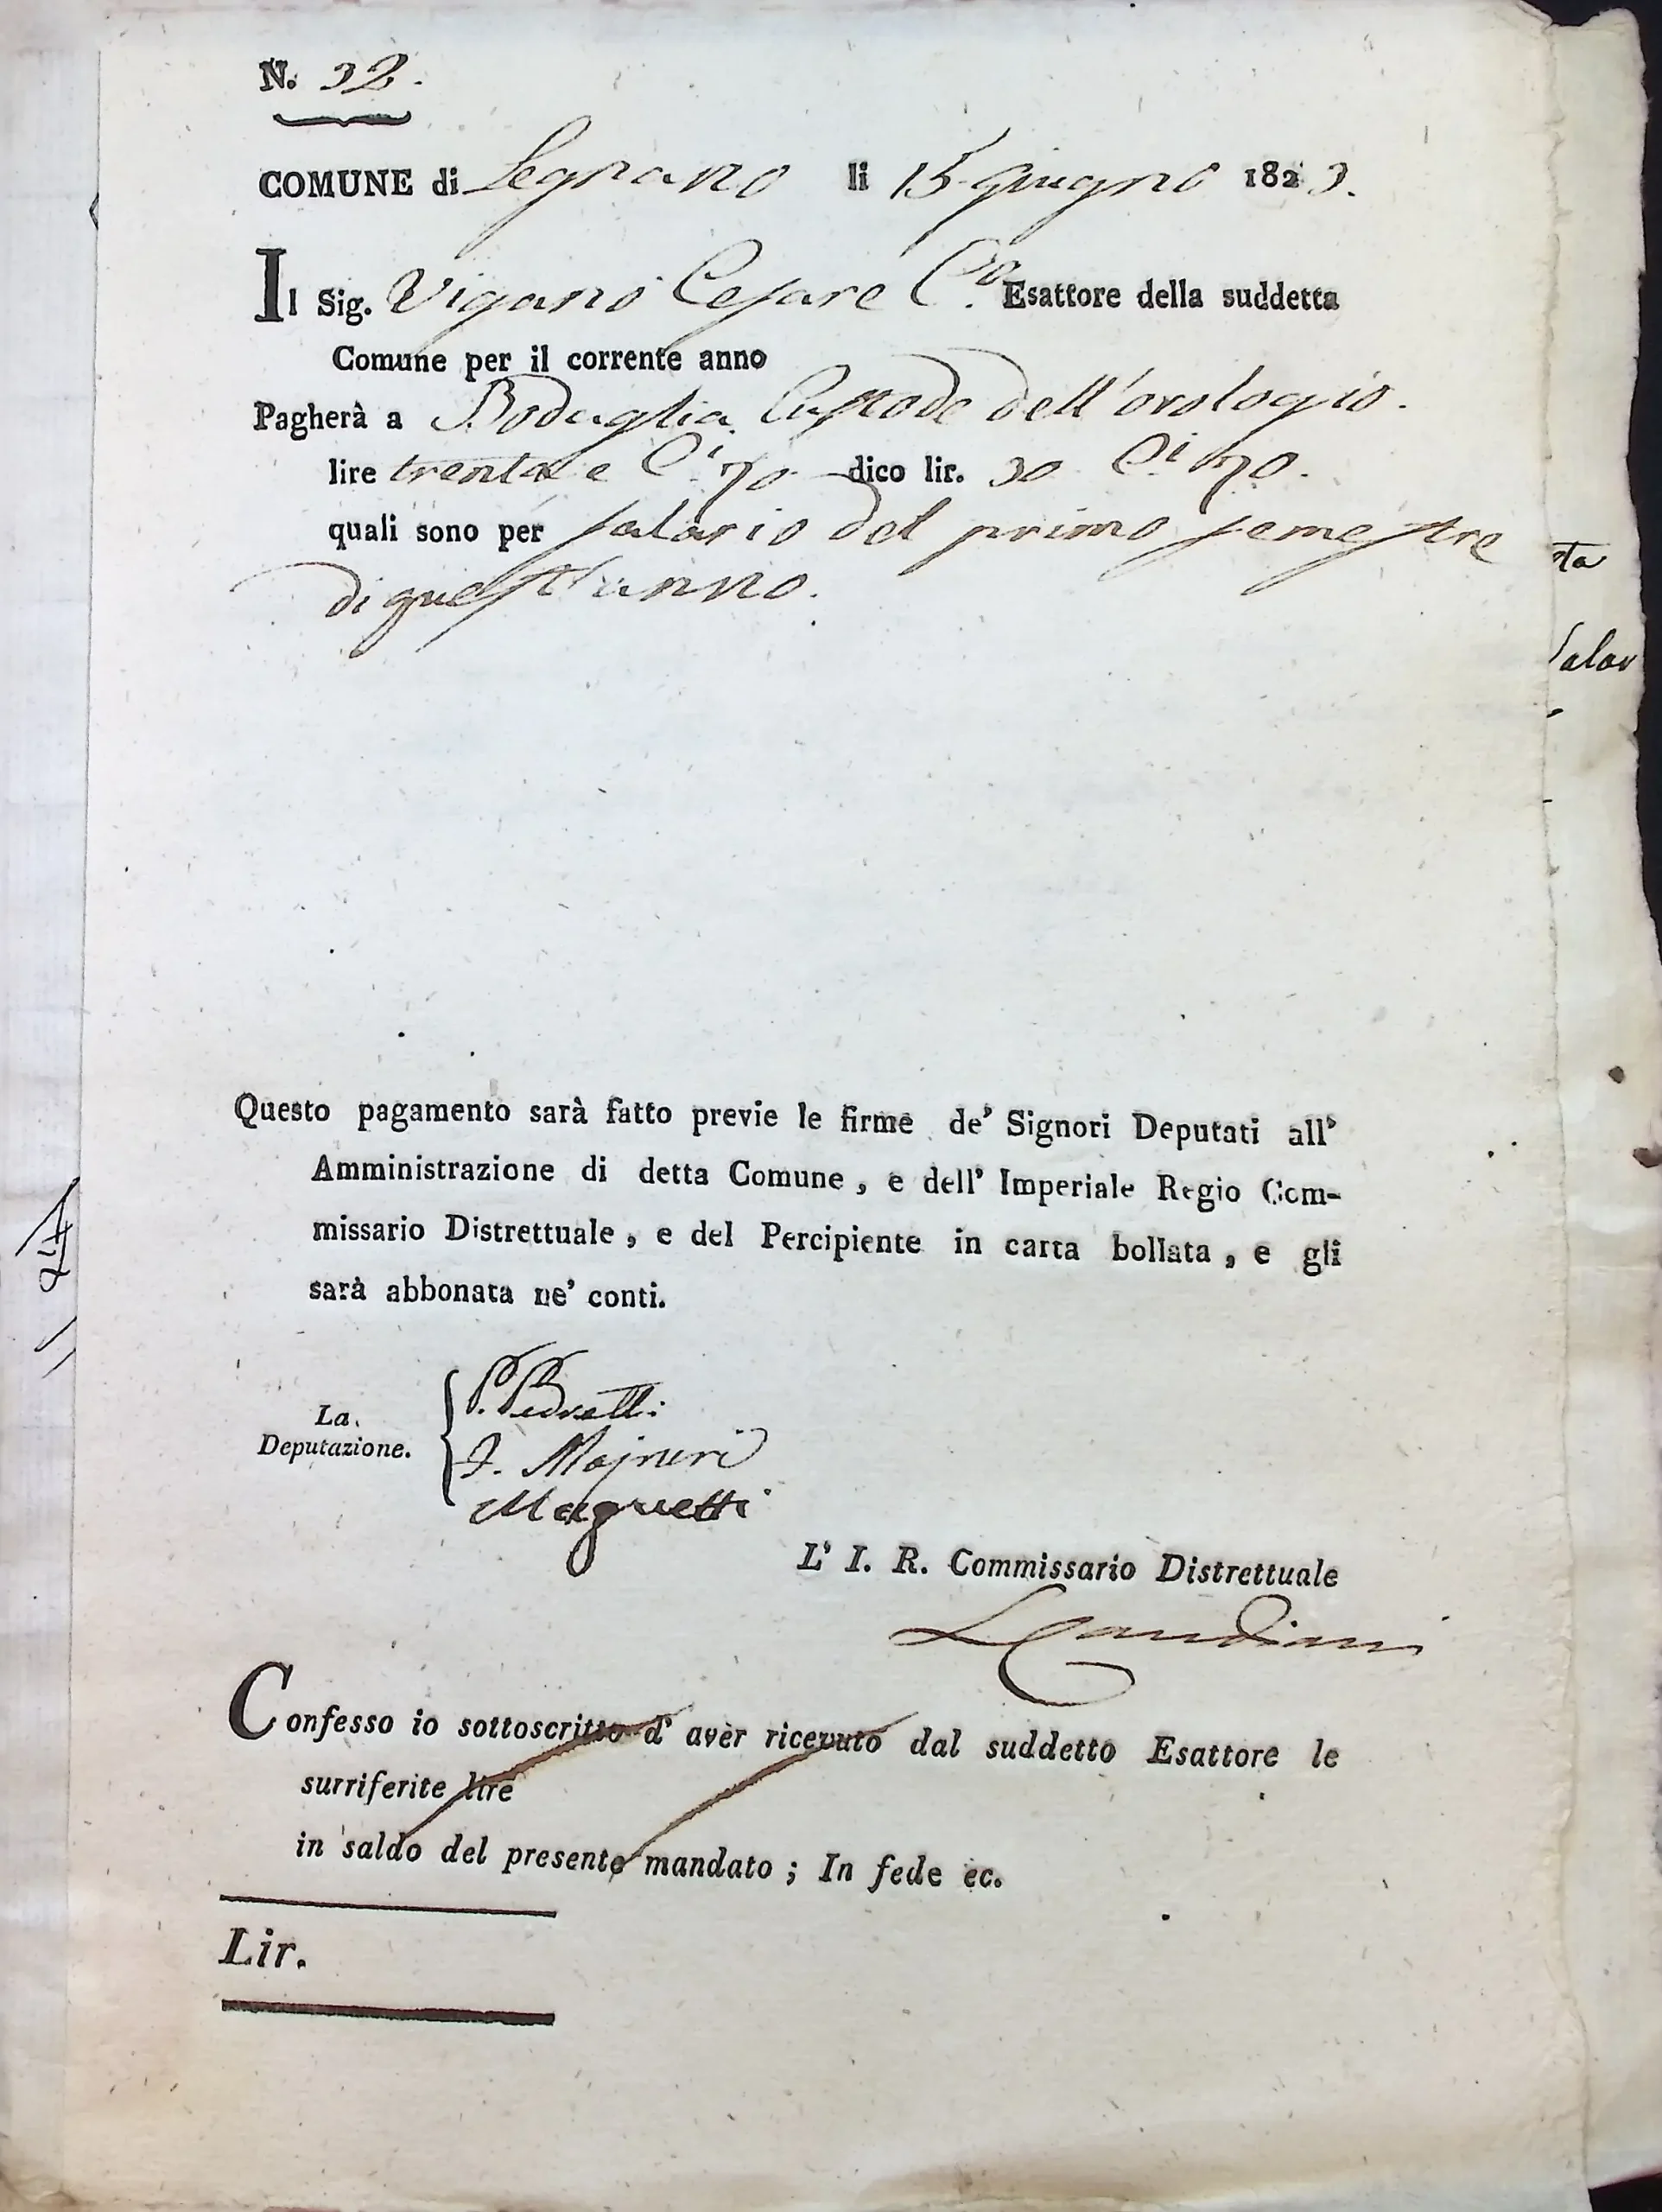 N. 32.
COMUNE di Legnano li 15 giugno 1823.
Il Sig. Viganò Cesare Esattore della suddetta
Comune per il corrente anno
Pagherà a Bodaglia Custode dell'orologio.
lire trenta e C.i 70 dico lir. 30 C.i 70.
quali sono per salario del primo semestre
di quest'anno.
ta
Salar
Questo pagamento sarà fatto previe le firme de' Signori Deputati all'
Amministrazione di detta Comune, e dell' Imperiale Regio Com-
missario Distrettuale, e del Percipiente in carta bollata, e gli
sarà abbonata ne' conti.
La
Deputazione.
Magnetti
L' I. R. Commissario Distrettuale
Confesso io sottoscritto d' aver ricevuto dal suddetto Esattore le
surriferite lire
in saldo del presente mandato; In fede ec.
Lir.